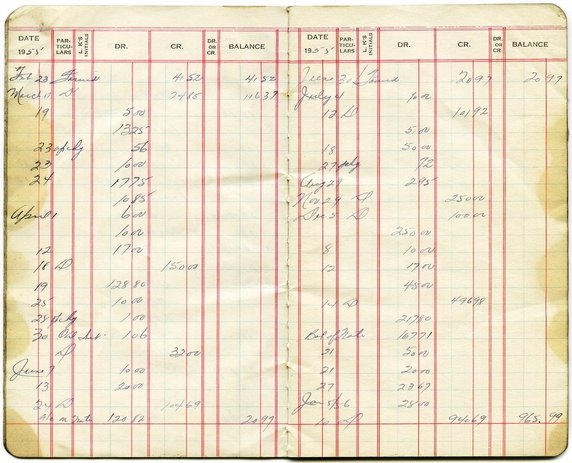 DATE 1955 PARTICULARS L. K'S INITIALS DR. CR. DR. OR CR. BALANCE
Feb 23 Found 41 52 41 52
March 11 D 74 85 116 37
19 5 00
13 25
23 56
23 10 00
24 17 75
10 85
April 1 6 00
10 00
12 17 00
18 D 150 00
19 128 80
25 10 00
28 1 00
30 1 06
D 32 00
June 7 10 00
13 20 00
24 D 104 69
Note 120 82 20 99
DATE 1955 PARTICULARS L. K'S INITIALS DR. CR. DR. OR CR. BALANCE
June 30 Found 20 97 20 97
July 4
12 D 101 92
5 00
18 50 00
27 72
Aug 29 2 95
Nov 29 D 250 00
Dec 5 D 100 00
250 00
8 10 00
12 17 00
45 00
14 D 496 98
217 80
Bal of Note 167 71
21 5 00
21 20 00
27 23 67
Jan 5/56 28 00
10 D 940 69 965.99